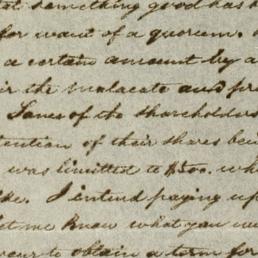 not something good has b
for want of a quorum.
a certain amount by a
ir the malacate and pr
Loues of the shareholders
tention of their shares bein
was limitted to $50. wh
ke. I intend paying up
let me know what you
vour to obtain a term for